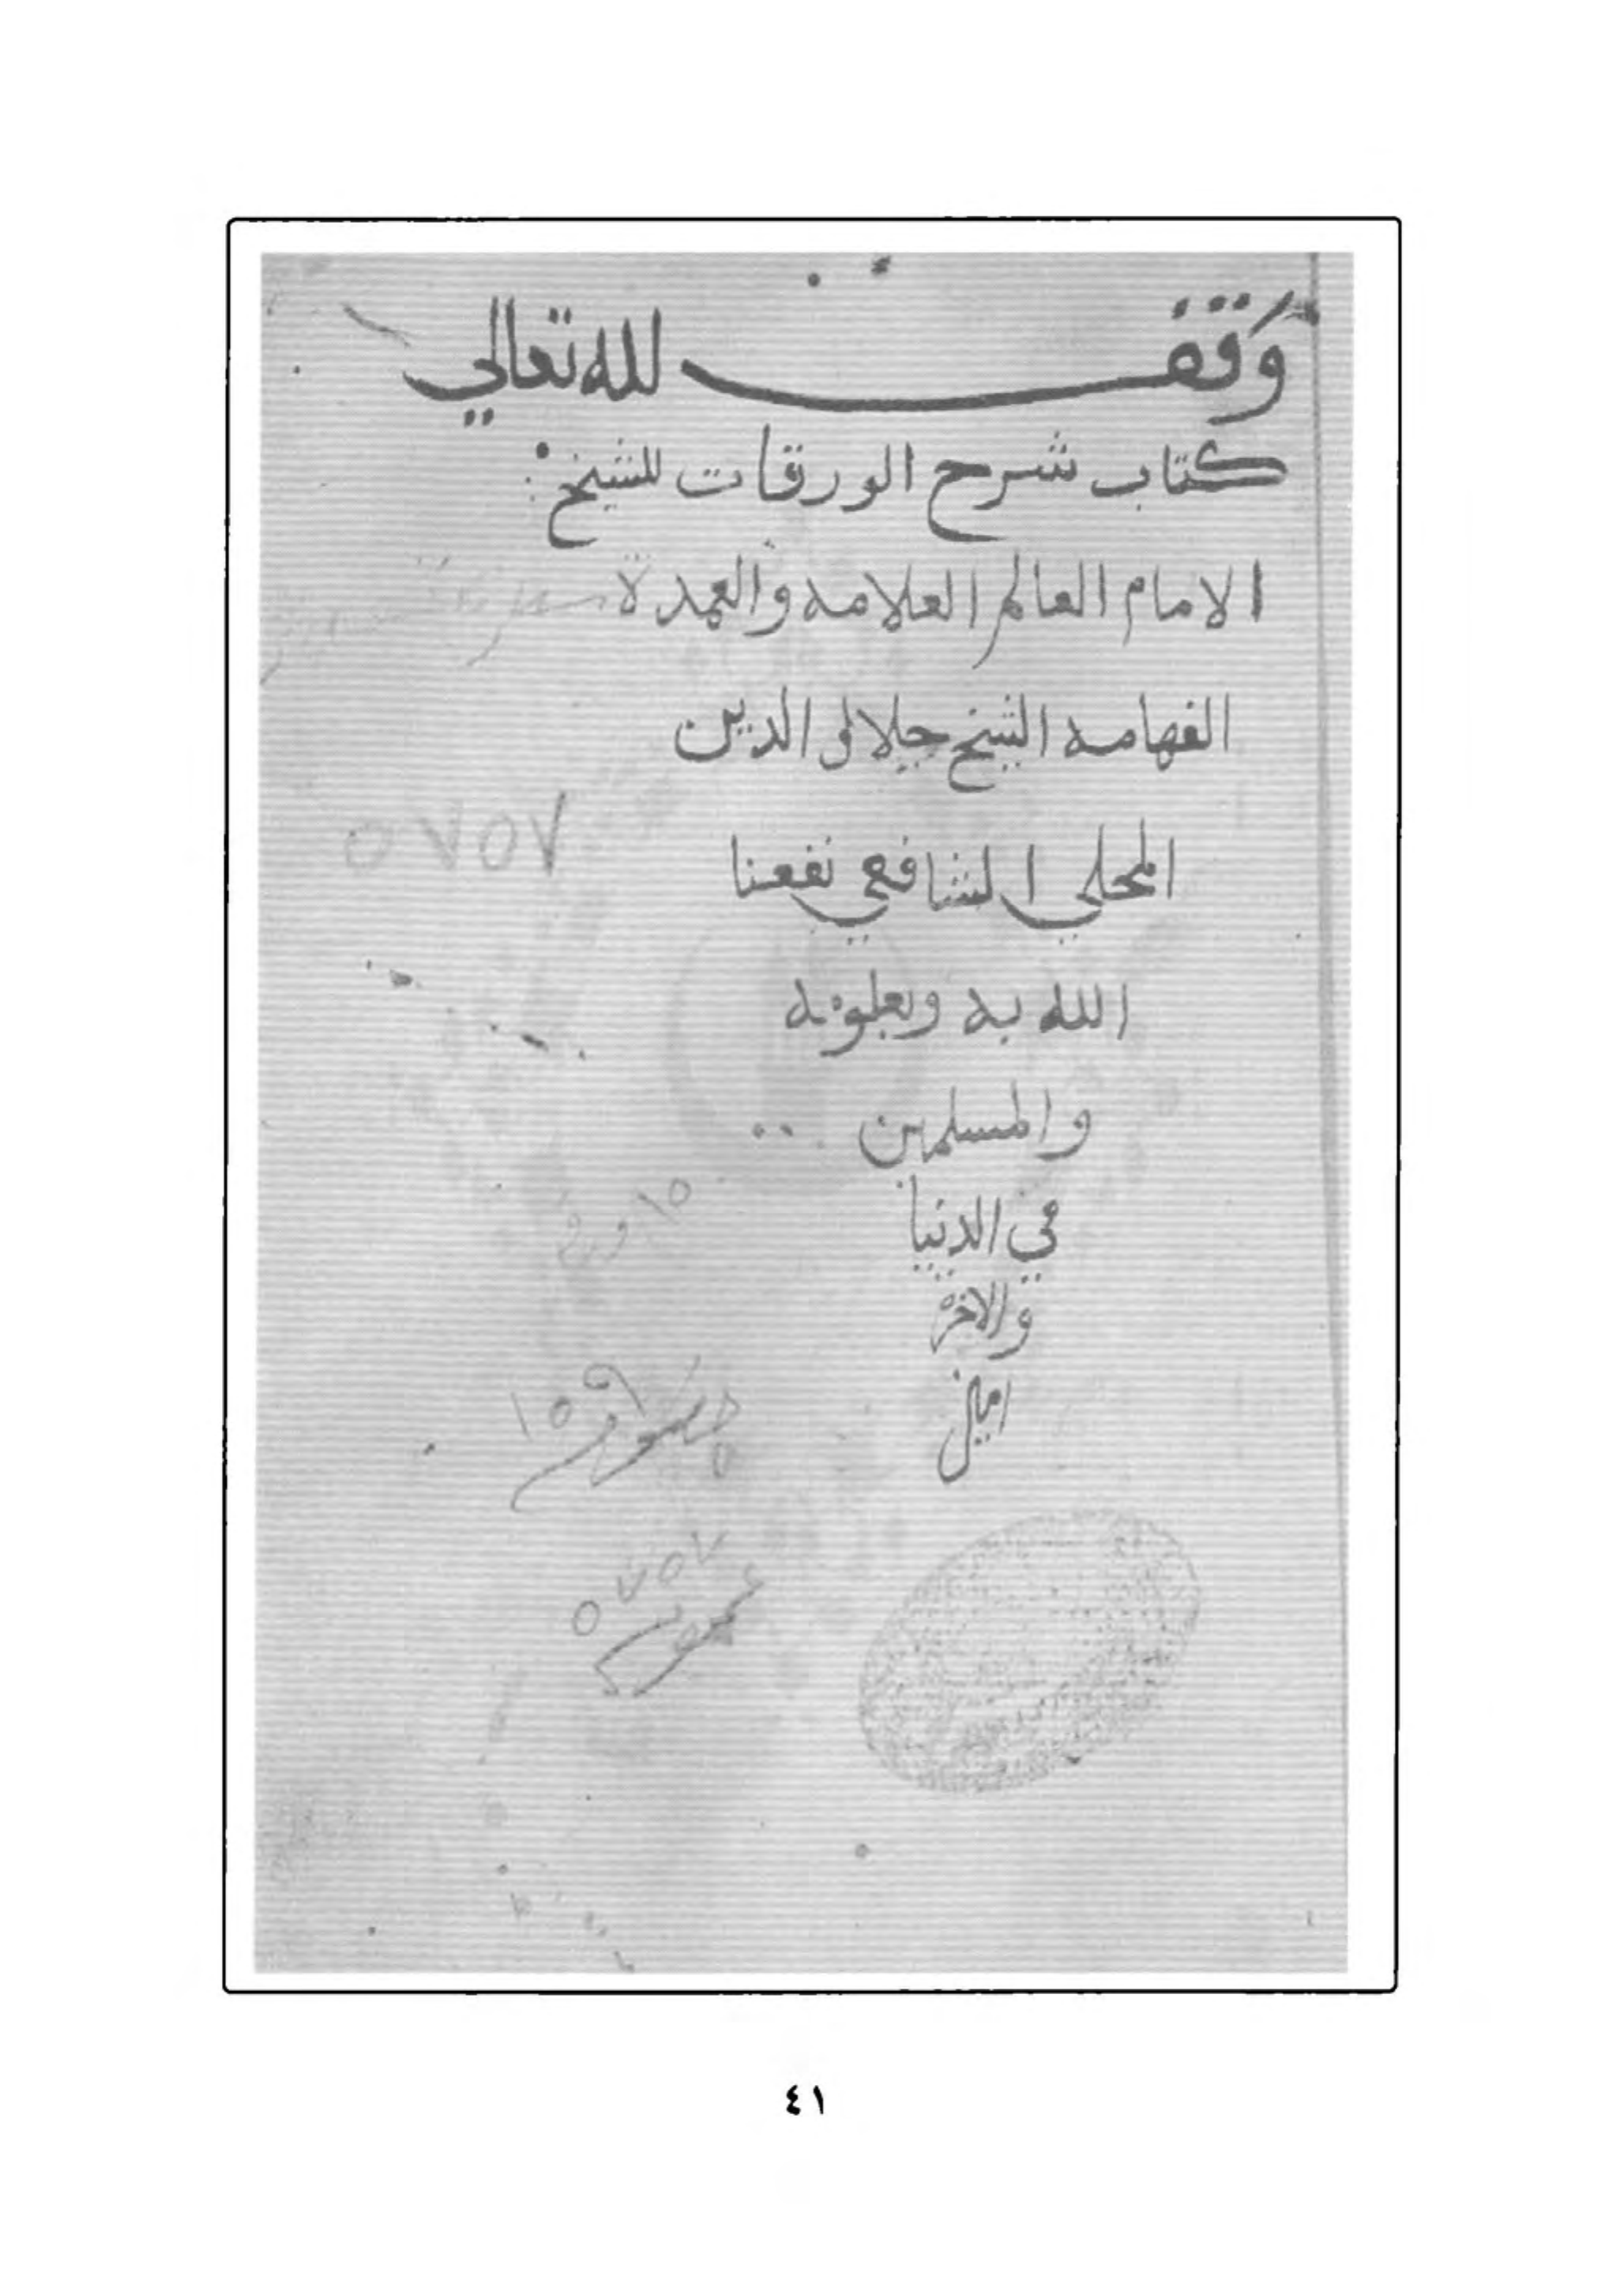 وَقف لله تعالي
كتاب شرح الورقات للشيخ
الامام العالم العلامه والعمدة
الفهامه الشيخ جلال الدين
المحلي الشافعي نفعنا
٥٧٥٧
الله به وبعلومه
والمسلمين
في الدنيا
والاخره
امين
٥٧٥٧
٤١